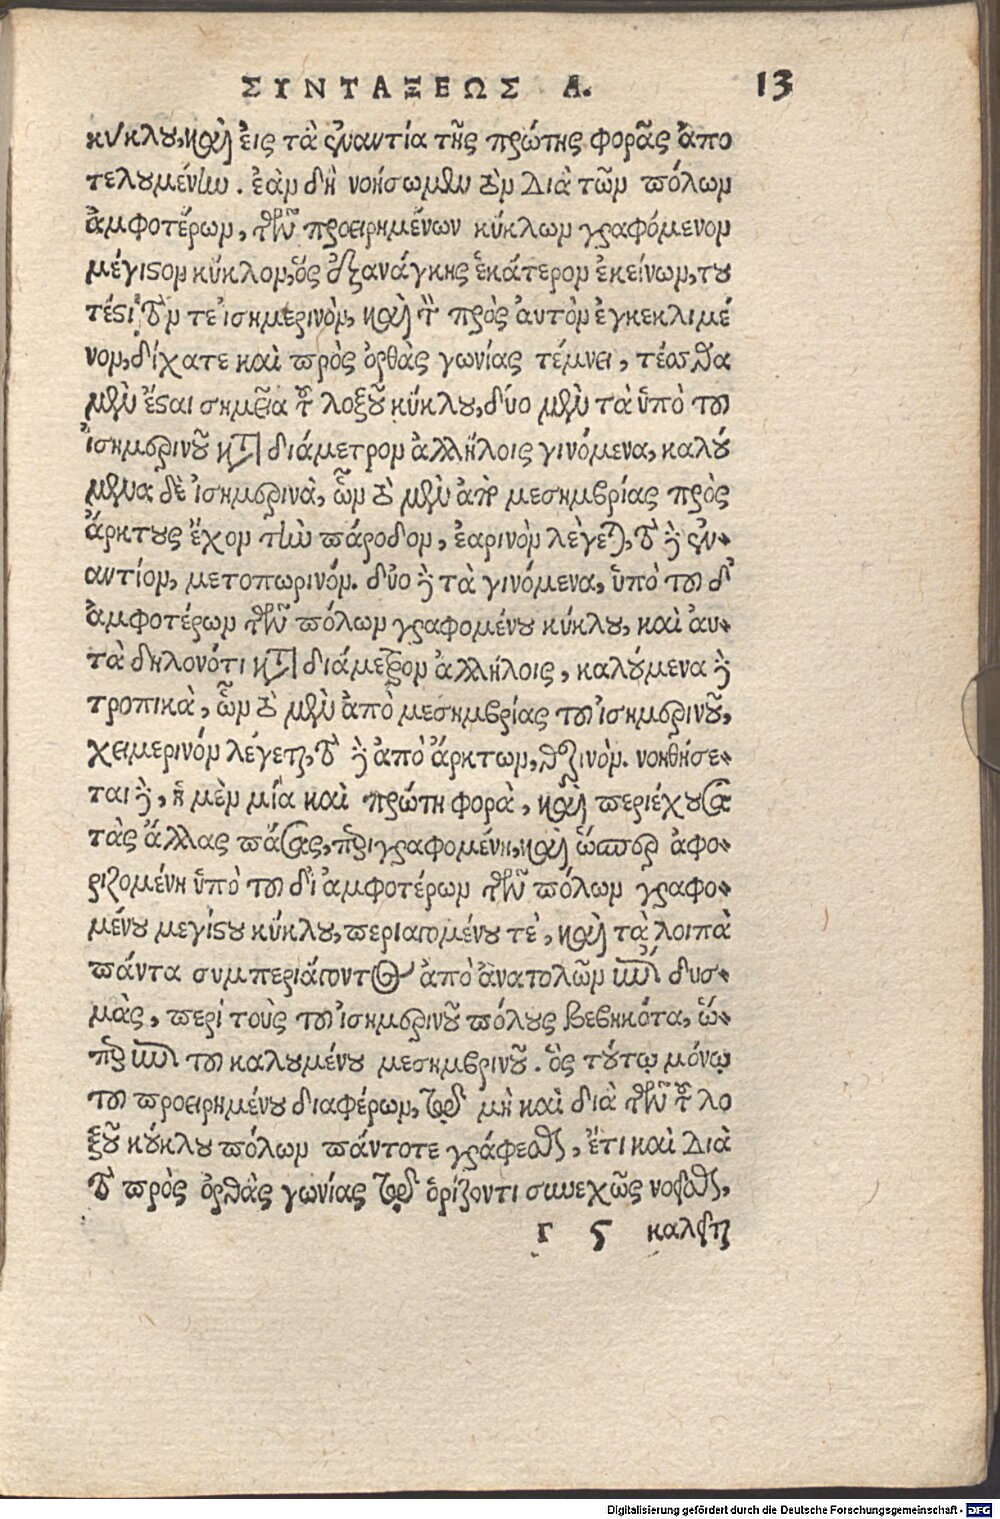 ΣΥΝΤΑΞΕΩΣ Α. 13
κύκλου, καὶ εἰς τὰ ἐναντία τῆς πρώτης φορᾶς ἀπο
τελουμένων. ἐὰν δὴ νοήσωμεν τὸν διὰ τῶν πόλων
ἀμφοτέρων, τῶν προειρημένων κύκλων γραφόμενον
μέγιστον κύκλον, ὃς ἐξανάγκης ἑκάτερον ἐκείνων, του
τέστι τόν τε ἰσημερινὸν, καὶ τὸν πρὸς αὐτὸν ἐγκεκλιμέ
νον, δίχατε καὶ πρὸς ὀρθὰς γωνίας τέμνει, τέσσαρα
μὲν ἔσται σημεῖα τοῦ λοξοῦ κύκλου, δύο μὲν τὰ ὑπὸ τοῦ
ἰσημερινοῦ κατὰ διάμετρον ἀλλήλοις γινόμενα, καλού
μενα δὲ ἰσημερινὰ, ὧν τὸ μὲν ἀπὸ μεσημβρίας πρὸς
ἄρκτους ἔχον τὴν πάροδον, ἐαρινὸν λέγεται, τὸ δὲ ἐν-
αντίον, μετοπωρινόν. δύο δὲ τὰ γινόμενα, ὑπὸ τοῦ δι'
ἀμφοτέρων τῶν πόλων γραφομένου κύκλου, καὶ αὐ-
τὰ δηλονότι κατὰ διάμετρον ἀλλήλοις, καλούμενα δὲ
τροπικὰ, ὧν τὸ μὲν ἀπὸ μεσημβρίας τοῦ ἰσημερινοῦ,
χειμερινὸν λέγεται, τὸ δὲ ἀπὸ ἄρκτων, θερινὸν. νοηθήσε-
ται δὲ, ἡ μὲν μία καὶ πρώτη φορὰ, καὶ περιέχουσα
τὰς ἄλλας πάσας, περιγραφομένη, καὶ ὥσπερ ἀφο-
ριζομένη ὑπὸ τοῦ δι' ἀμφοτέρων τῶν πόλων γραφο-
μένου μεγίστου κύκλου, περιαγομένου τὲ, καὶ τὰ λοιπὰ
πάντα συμπεριάγοντος ἀπὸ ἀνατολῶν ἐπὶ δυσ-
μὰς, περὶ τοὺς τοῦ ἰσημερινοῦ πόλους βεβηκότα, ὥσ-
περ ἐπὶ τοῦ καλουμένου μεσημβρινοῦ. ὃς τούτῳ μόνῳ
τοῦ προειρημένου διαφέρων, τῷ μὴ καὶ διὰ τῶν τοῦ λο
ξοῦ κύκλου πόλων πάντοτε γράφεσθαι, ἔτι καὶ διὰ
τὸ πρὸς ὀρθὰς γωνίας τῷ ὁρίζοντι συνεχῶς νοεῖσθαι,
Γ 5 καλεῖται